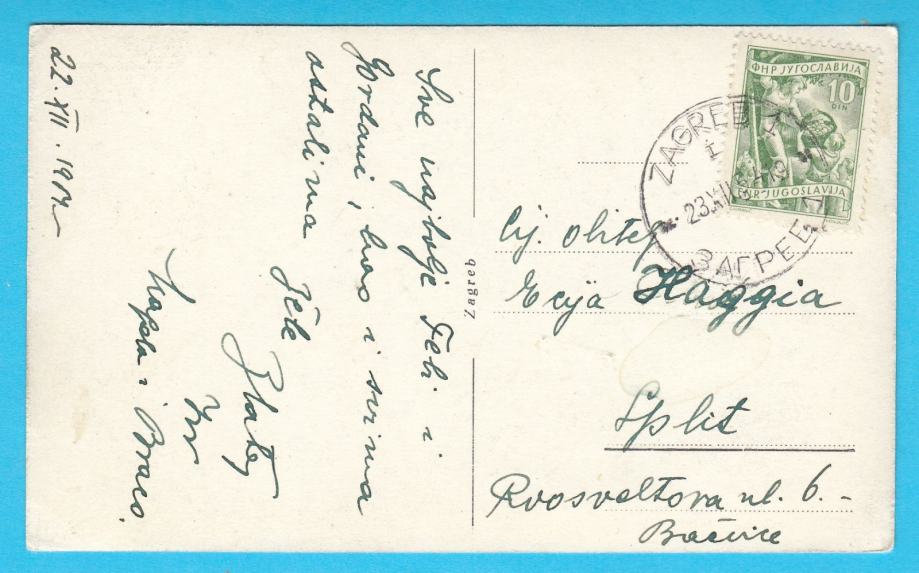 22. XII. 195
Sve najbolje Feli i
Gordani, kao i svima
ostalima žele
Zlata,
i Braco.
Zagreb
ФНР ЈУГОСЛАВИЈА
10
DIN
FNR JUGOSLAVIJA
ZAGREB
23.XII
ЗАГРЕБ
Cij. obitelj
Haggia
Split
Rvosveltova ul. 6.-
Bačvice